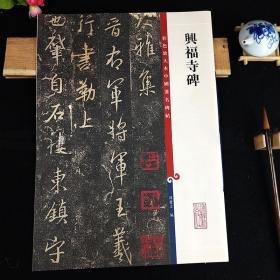 興福寺碑
彩色放大本中國著名碑帖
大雅集
晉右軍將軍王羲
行書勒上
肇自石樓東鎮守